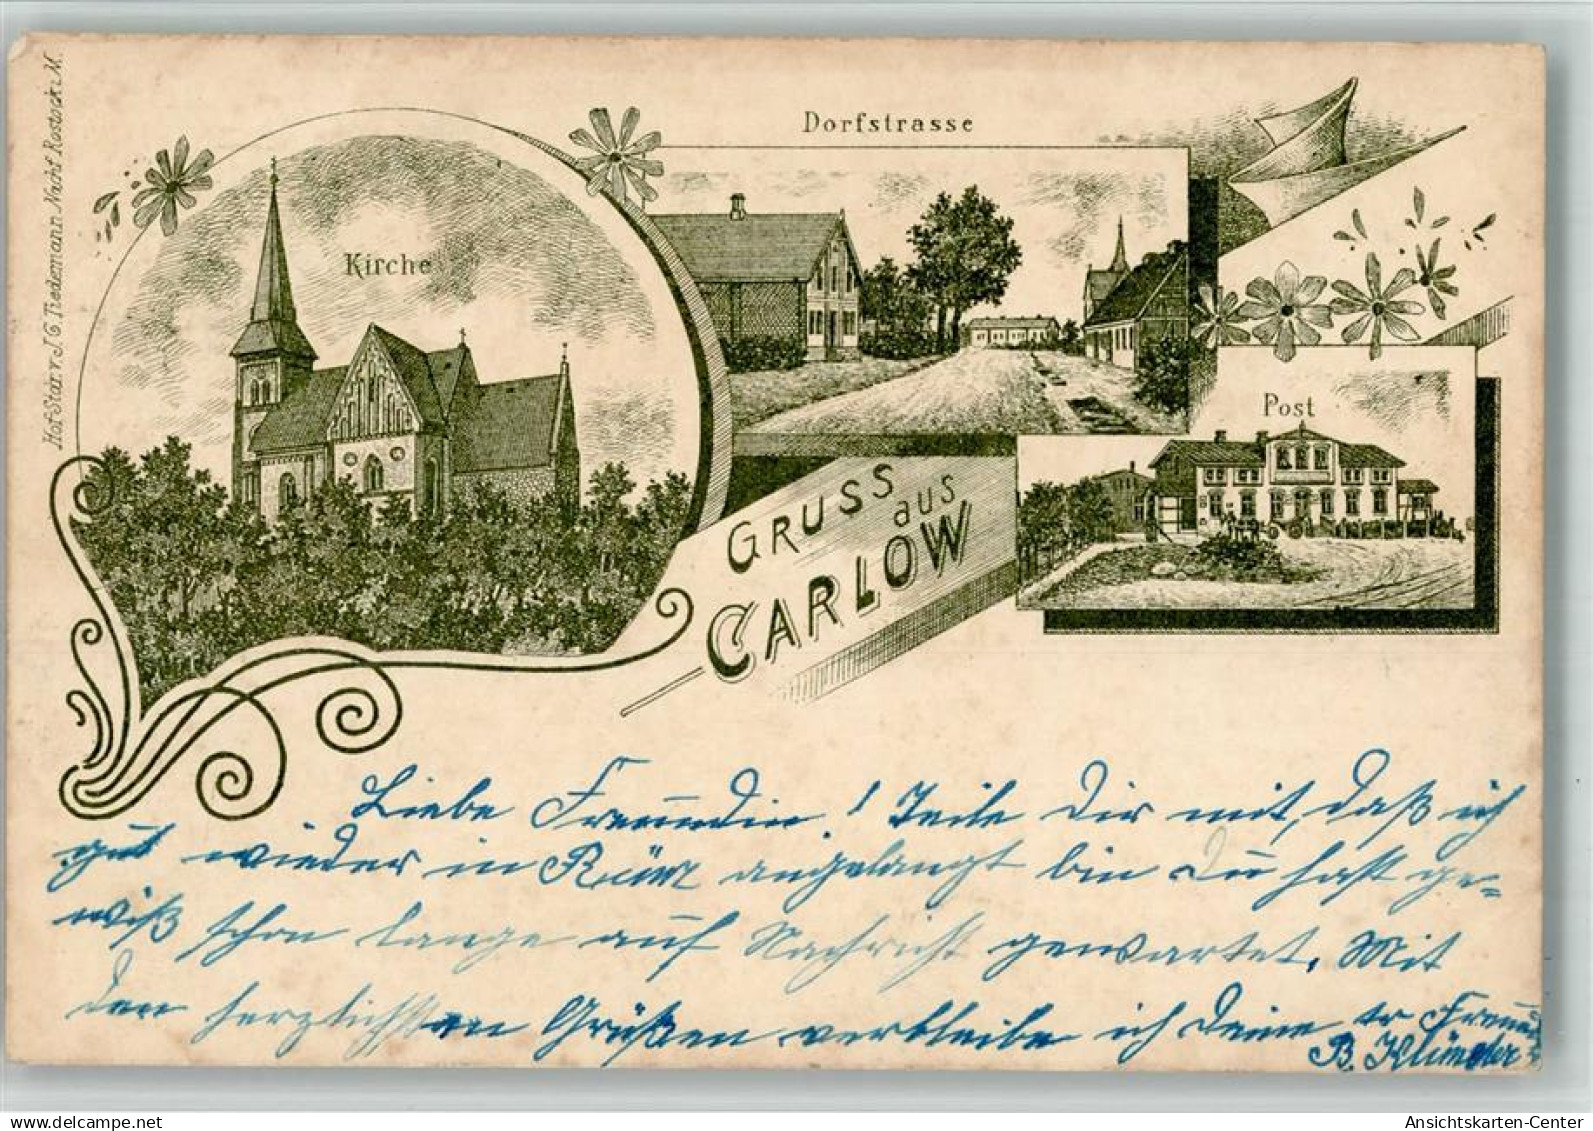 Hof-Stdr. v. J. G. Tiedemann Nachf. Rostock i. M.
Kirche
Dorfstrasse
Post
GRUSS
aus
CARLOW
Liebe Freundin! Teile Dir mit, daß ich
gut wieder in angelangt bin Du hast ge=
wiß schon lange auf Nachricht gewartet. Mit
den herzlichsten Grüßen verbleibe ich Deine tr Freundin
B.
Ansichtskarten-Center